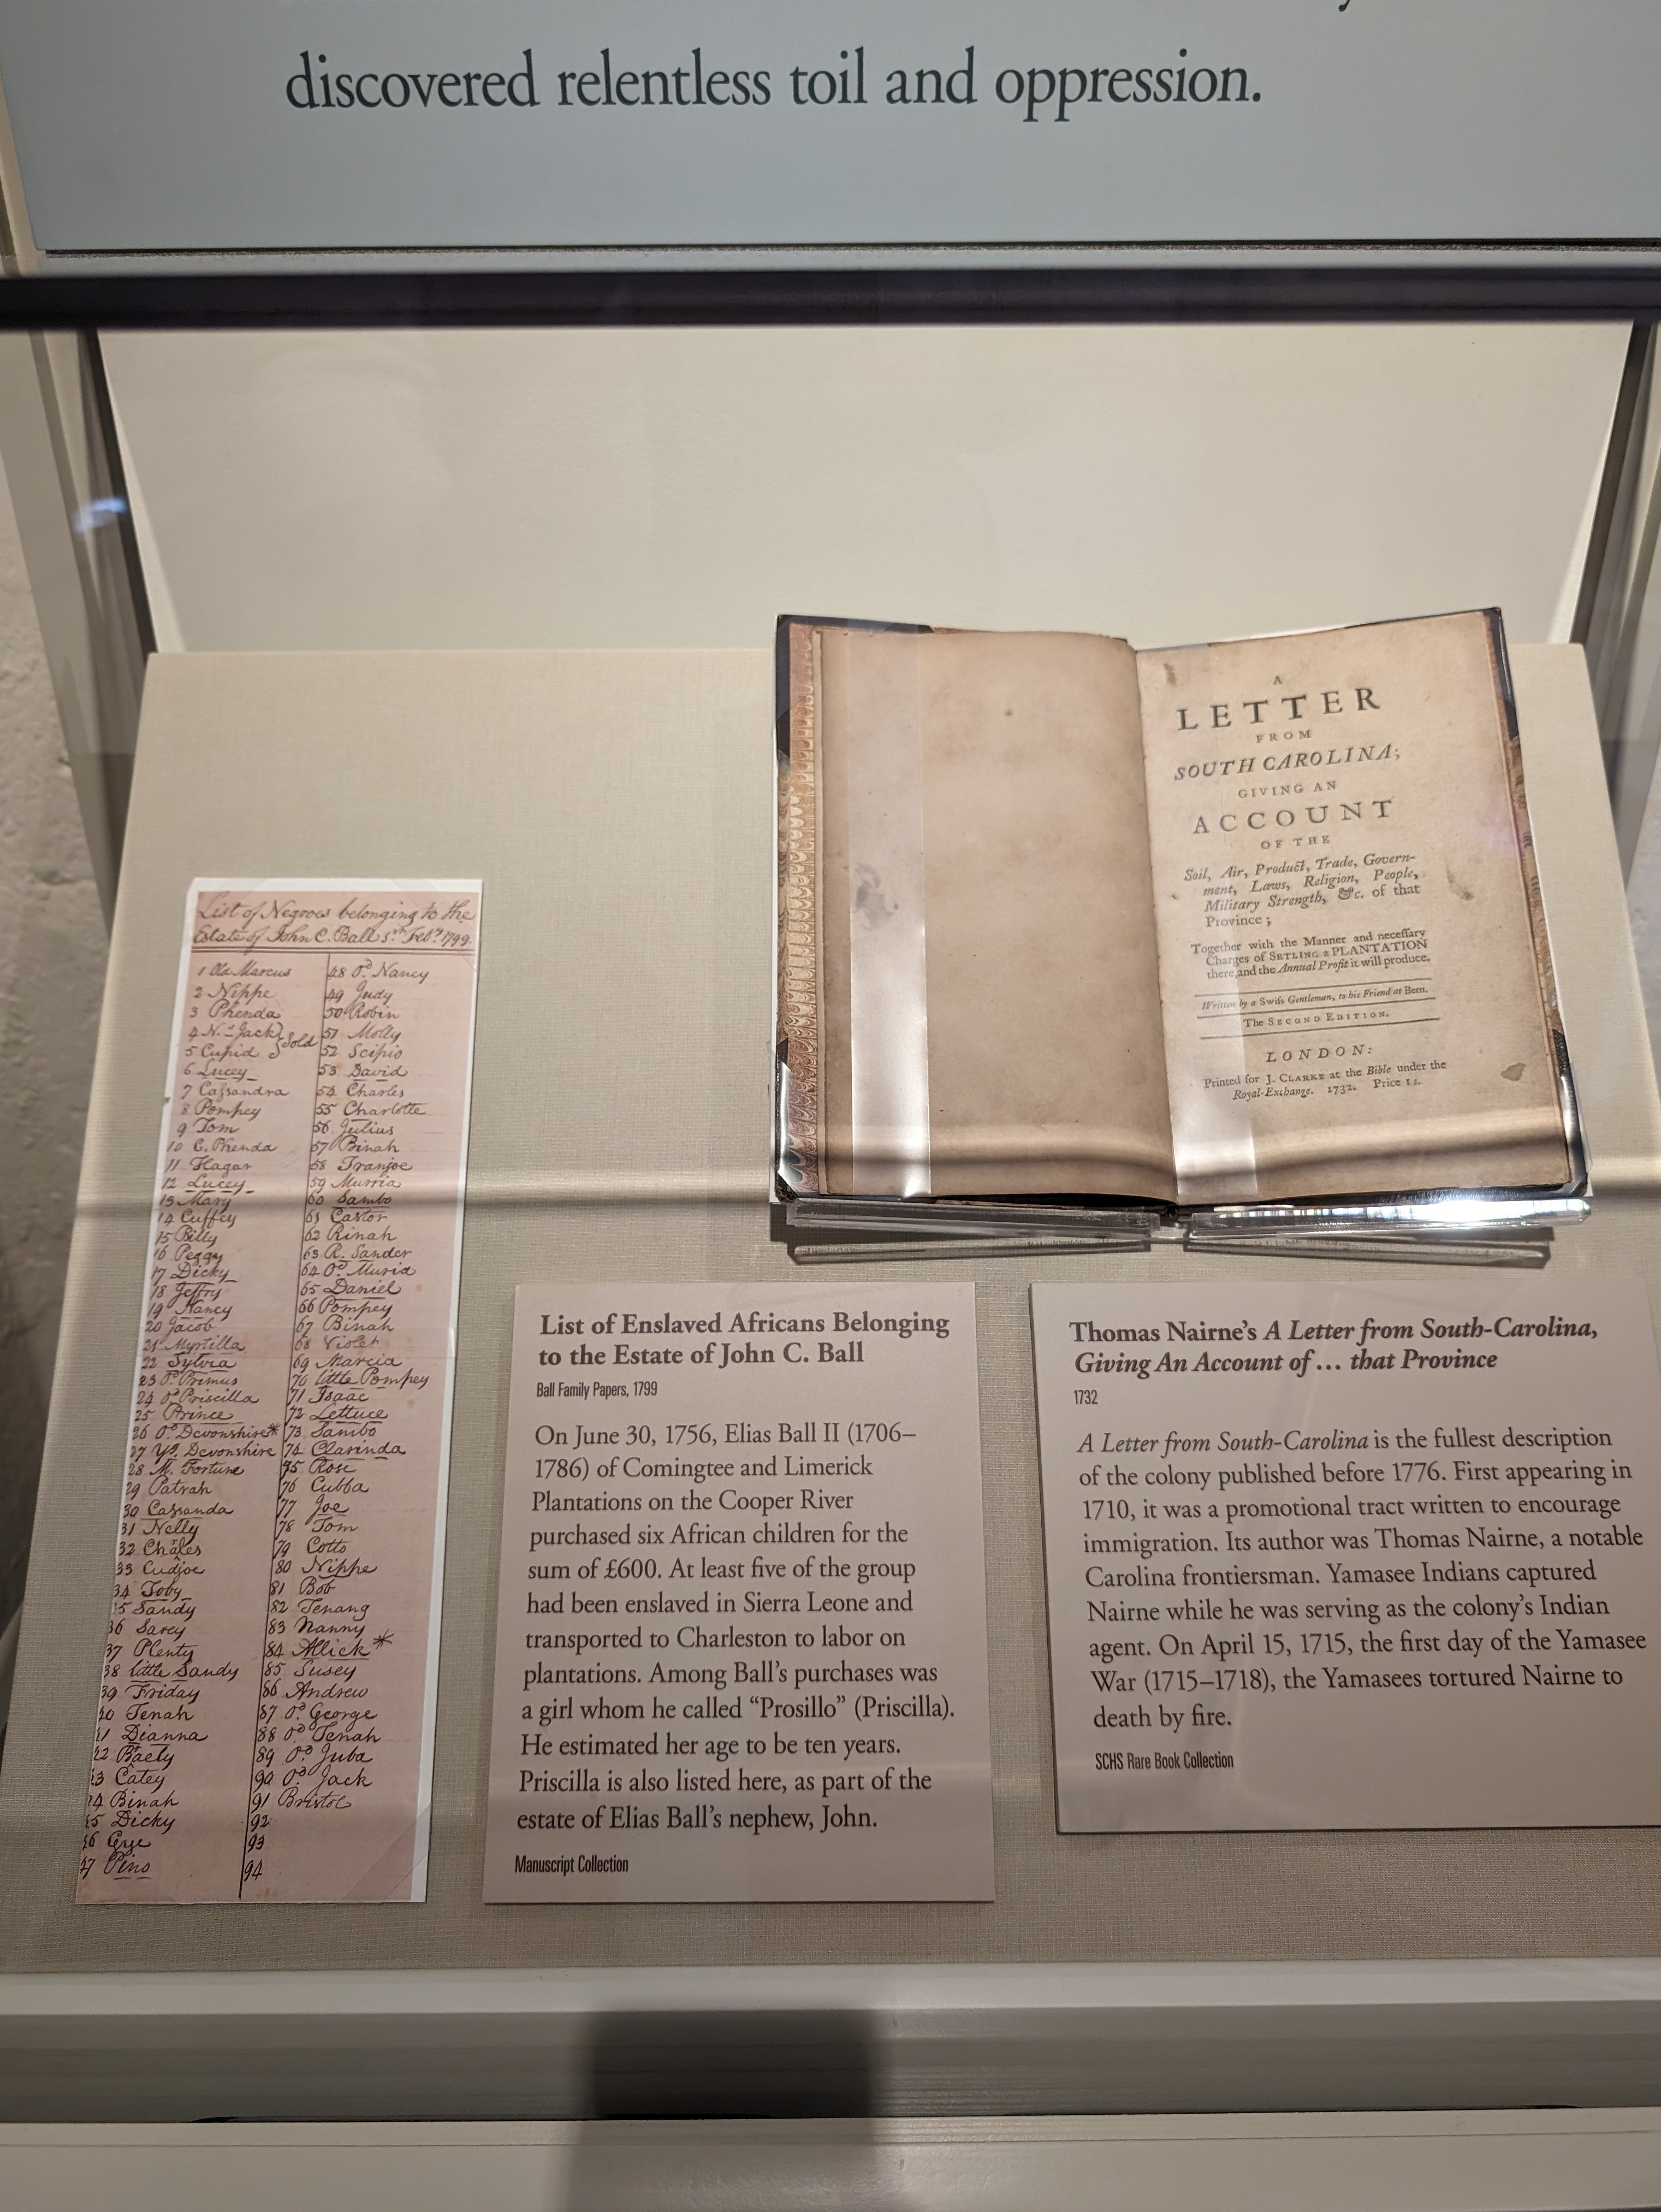 discovered relentless toil and oppression.
List of Negroes belonging to the
Estate of John C. Ball 5th Feby. 1799.
1 Old Marcus
2 Nippe
3 Phenda
4 N.d Jack
5 Cupid
Sold
6 Lucey
7 Cassandra
8 Pompey
9 Tom
10 C. Phenda
11 Hagar
12 Lucey
13 Mary
14 Cuffey
15 Billy
16 Peggy
17 Dicky
18 Jeffry
19 Nancy
20 Jacob
21 Myrtilla
22 Sylvia
23 Od. Primus
24 Od. Priscilla
25 Prince
26 Od. Devonshire*
27 Yg. Devonshire
28 M. Fortune
29 Patrah
30 Cassanda
31 Nelly
32 Chales
33 Cudjoe
34 Toby
35 Sandy
36 Sarey
37 Plenty
38 little Sandy
39 Friday
40 Tenah
41 Dianna
42 Baely
43 Catey
44 Binah
45 Dicky
46 Gye
47 Pino
48 Od. Nancy
49 Judy
50 Robin
51 Molly
52 Scipio
53 David
54 Charles
55 Charlotte
56 Julius
57 Binah
58 Franjoe
59 Murria
60 Sambo
61 Castor
62 Rinah
63 R. Sander
64 Od. Muria
65 Daniel
66 Pompey
67 Binah
68 Violet
69 Marcia
70 little Pompey
71 Isaac
72 Lettuce
73 Sambo
74 Clarinda
75 Rose
76 Cubba
77 Joe
78 Tom
79 Cotto
80 Nippe
81 Bob
82 Tenang
83 Nanny
84 Allick*
85 Susey
86 Andrew
87 Od. George
88 Od. Tenah
89 Od. Juba
90 Od. Jack
91 Bristol
92
93
94
A
LETTER
FROM
SOUTH CAROLINA;
GIVING AN
ACCOUNT
OF THE
Soil, Air, Product, Trade, Govern-
ment, Laws, Religion, People,
Military Strength, &c. of that
Province;
Together with the Manner and necessary
Charges of SETLING a PLANTATION
there, and the Annual Profit it will produce.
Written by a Swiss Gentleman, to his Friend at Bern.
The SECOND EDITION.
LONDON:
Printed for J. CLARKE at the Bible under the
Royal-Exchange. 1732. Price 1 s.
List of Enslaved Africans Belonging
to the Estate of John C. Ball
Ball Family Papers, 1799
On June 30, 1756, Elias Ball II (1706–
1786) of Comingtee and Limerick
Plantations on the Cooper River
purchased six African children for the
sum of £600. At least five of the group
had been enslaved in Sierra Leone and
transported to Charleston to labor on
plantations. Among Ball's purchases was
a girl whom he called "Prosillo" (Priscilla).
He estimated her age to be ten years.
Priscilla is also listed here, as part of the
estate of Elias Ball's nephew, John.
Manuscript Collection
Thomas Nairne's A Letter from South-Carolina,
Giving An Account of... that Province
1732
A Letter from South-Carolina is the fullest description
of the colony published before 1776. First appearing in
1710, it was a promotional tract written to encourage
immigration. Its author was Thomas Nairne, a notable
Carolina frontiersman. Yamasee Indians captured
Nairne while he was serving as the colony's Indian
agent. On April 15, 1715, the first day of the Yamasee
War (1715–1718), the Yamasees tortured Nairne to
death by fire.
SCHS Rare Book Collection